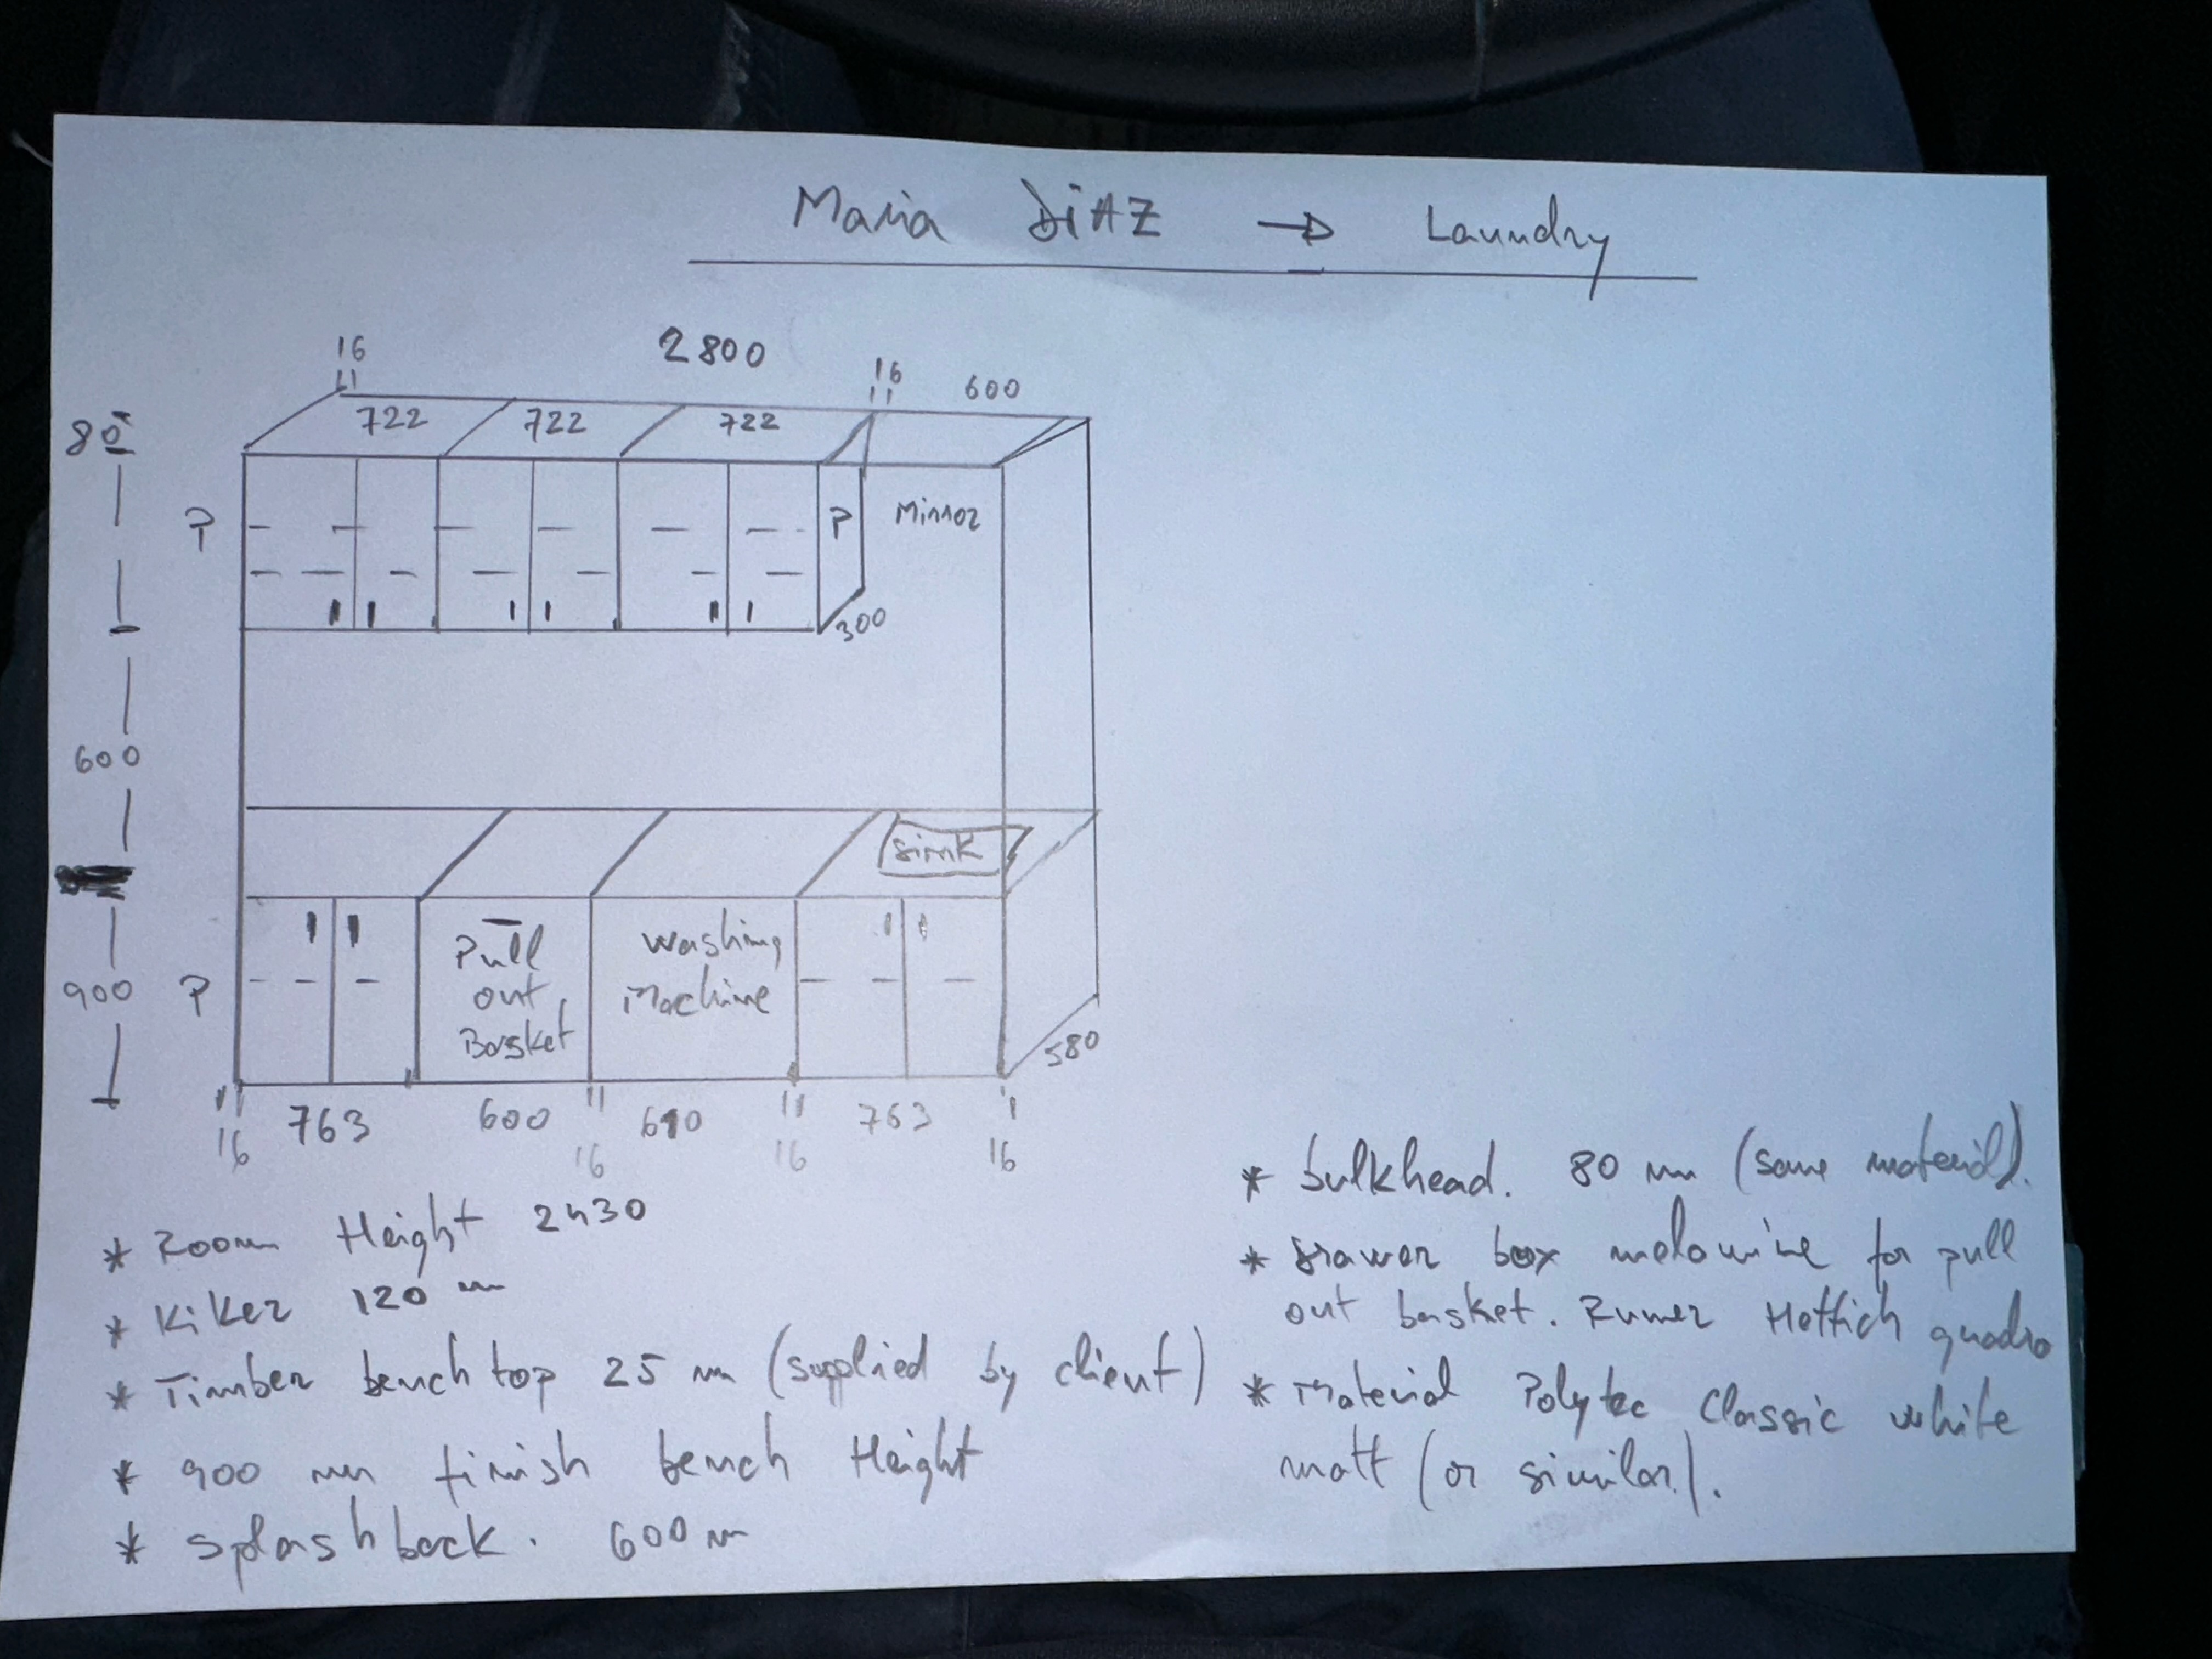 Maria DiAZ → Laundry
16
2800
16
600
80
722
722
722
P
P
Mirror
300
600
sink
Pull
out
Basket
washing
Machine
900
P
580
763
600
610
763
16
16
16
16
* Room Height 2430
* KiKer 120 mm
* Timber bench top 25 mm (supplied by client)
* 900 mm finish bench Height
* splash back. 600 m
* bulkhead. 80 mm (same material).
* Drawer box melamine for pull
out basket. Runner Hettich quadro
* Material Polytec Classic white
matt (or similar).